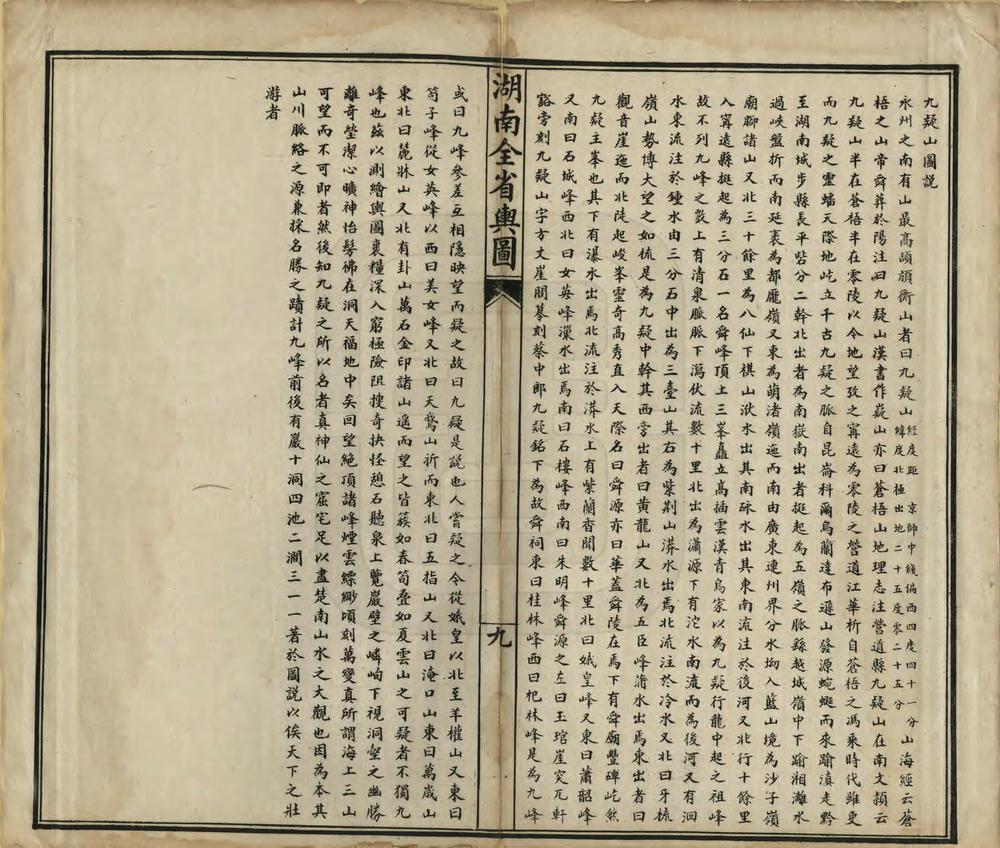 九疑山圖説
永州之南有山最高頭頎衡山者曰九疑山經度距京師中綫偏西四度四十一分緯度北極出地二十五度零二十五分山海經云蒼
梧之山帝舜葬於陽注曰九疑山漢書作嶷山亦曰蒼梧山地理志注營道縣九疑山在南文穎云
九疑山半在蒼梧半在零陵以今地望攷之寗遠為零陵之營道江華析自蒼梧之馮乘時代雖更
而九疑之靈蟠天際地屹立千古九疑之脈自昆崙科爾烏蘭達布遜山發源蜿蜒而來踰滇走黔
至湖南城步縣長平砦分二幹北出者為南嶽南出者挺起為五嶺之脈繇越城嶺中下踰湘灕水
過峽盤折而南延袤為都龐嶺又東為萌渚嶺迤而南由廣東連州界分水坳入藍山境為沙子嶺
廟腳諸山又北三十餘里為八仙下棋山洑水出其南砅水出其東南流注於後河又北行十餘里
入寗遠縣挺起為三分石一名舜峰頂上三峯矗立高插雲漢青烏家以為九疑行龍中起之祖峰
故不列九峰之數上有清泉脈脈下瀉伏流數十里北出為瀟源下有沱水南流而為後河又有洄
水東流注於鍾水由三分石中出為三臺山其右為紫荆山漭水出焉北流注於冷水又北曰牙梳
嶺山勢博大望之如梳是為九疑中幹其西旁出者曰黄龍山又北為五臣峰蒲水出焉東出者曰
觀音崖迤而北陡起峻峯靈奇高秀直入天際名曰舜源亦曰華蓋舜陵在焉下有舜廟豐碑屹然
九疑主峯也其下有瀑水出焉北流注於漭水上有紫蘭香聞數十里北曰娥皇峰又東曰蕭韶峰
又南曰石城峰西北曰女英峰灙水出焉南曰石樓峰西南曰朱明峰舜源之左曰玉琯崖突兀軒
豁旁刻九疑山字方丈崖間摹刻蔡中郎九疑銘下為故舜祠東曰桂林峰西曰杞林峰是為九峰
湖南全省輿圖
九
或曰九峰參差互相隱映望而疑之故曰九疑是説也人嘗疑之今從娥皇以北至羊權山又東曰
筍子峰從女英峰以西曰美女峰又北曰天鵞山祈而東北曰五指山又北曰淹口山東曰萬歲山
東北曰麓牀山又北有卦山萬石金印諸山遥而望之皆簇如春筍疊如夏雲山之可疑者不獨九
峰也兹以測繪輿圖裹糧深入窮極險阻搜奇抉怪憩石聽泉上覽巖壁之嶙峋下視洞壑之幽勝
離奇瑩潔心曠神怡髣彿在洞天福地中矣回望絶頂諸峰煙雲縹緲頃刻萬變真所謂海上三山
可望而不可即者然後知九疑之所以名者真神仙之窟宅足以盡楚南山水之大觀也因為本其
山川脈絡之源兼採名勝之蹟計九峰前後有巖十洞四池二澗三一一著於圖説以俟天下之壯
游者